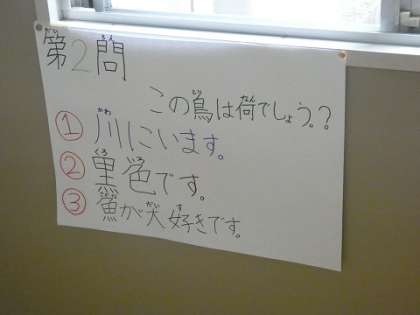 第2問
この鳥は何でしょう。?
① 川にいます。
② 黒色です。
③ 魚が大好きです。